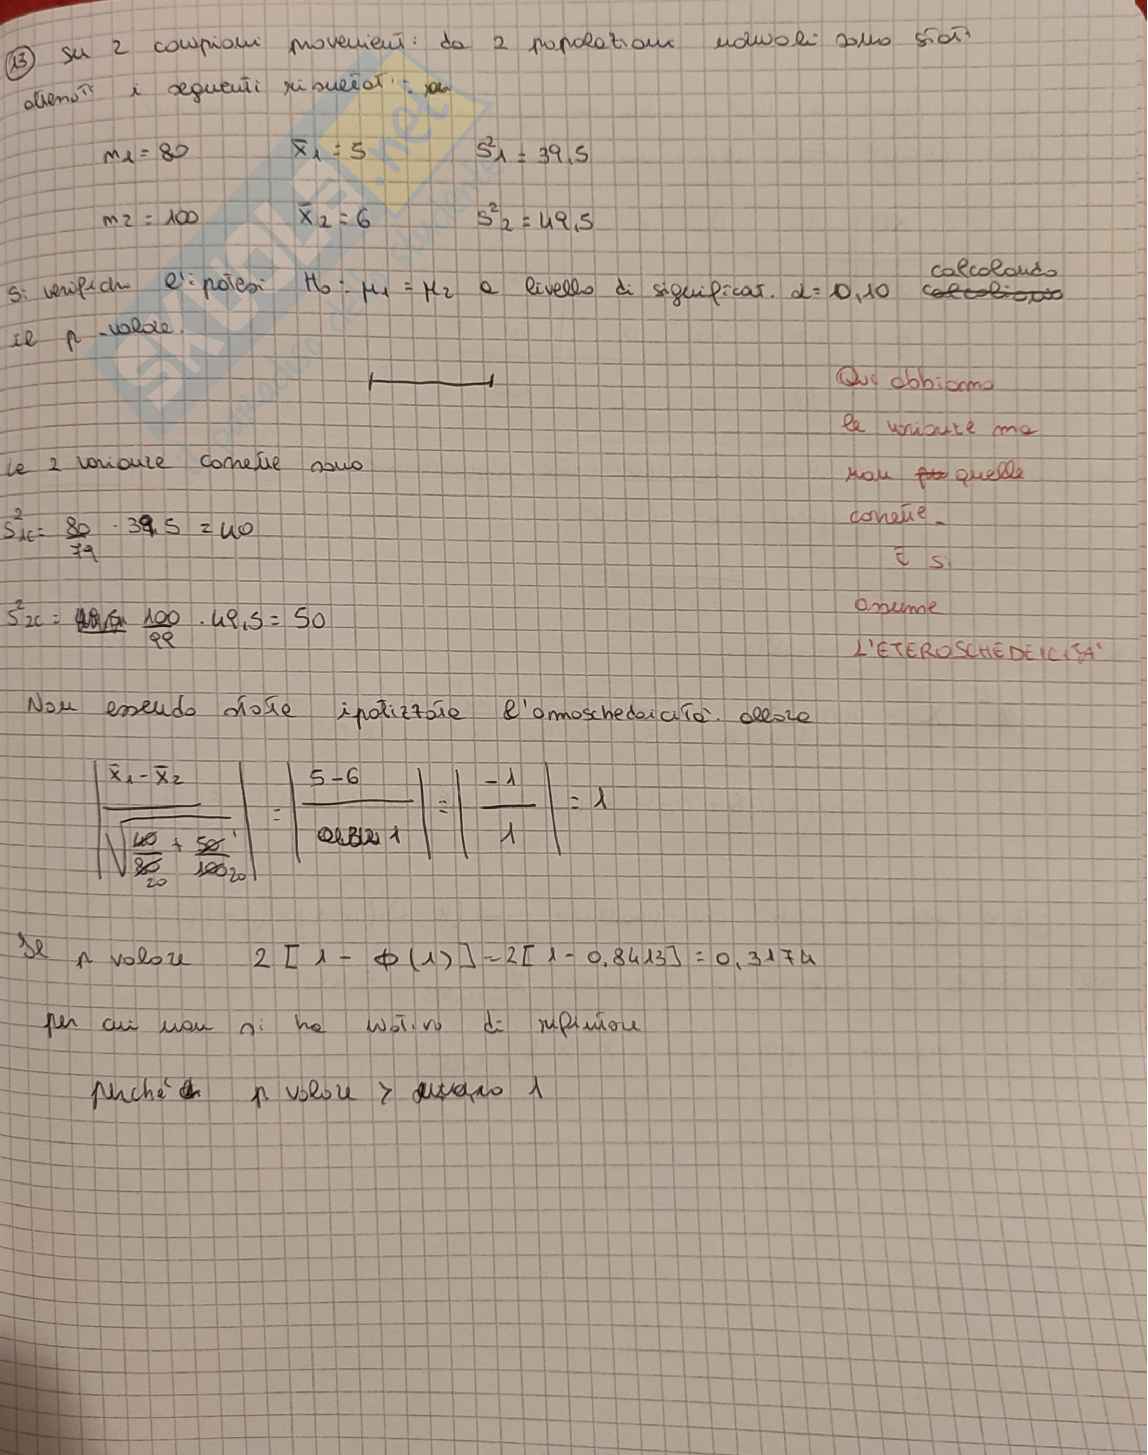 13 Su 2 campioni provenienti da 2 popolazioni normali sono stati
ottenuti i seguenti risultati:
n1 = 80 x̄1 = 5 S²1 = 39,5
n2 = 100 x̄2 = 6 S²2 = 49,5
Si verifichi l'ipotesi H0: μ1 = μ2 a livello di significat. α = 0,10 calcolando
il p-valore.
Qui abbiamo
le varianze ma
non quelle
corrette.
E si
assume
L'ETEROSCHEDEICITA'
Le 2 varianze corrette sono
S²1c = 80/79 · 39,5 = 40
S²2c = 100/99 · 49,5 = 50
Non essendo state ipotizzate l'omoschedaicità allora
|(x̄1 - x̄2)/√(40/80 + 50/100)| = |(5-6)/1| = |-1/1| = 1
20 20
Il p valore 2[1 - Φ(1)] = 2[1 - 0,8413] = 0,3174
per cui non si ha motivo di rifiutare
perché p valore > 1
SKUOLA.net